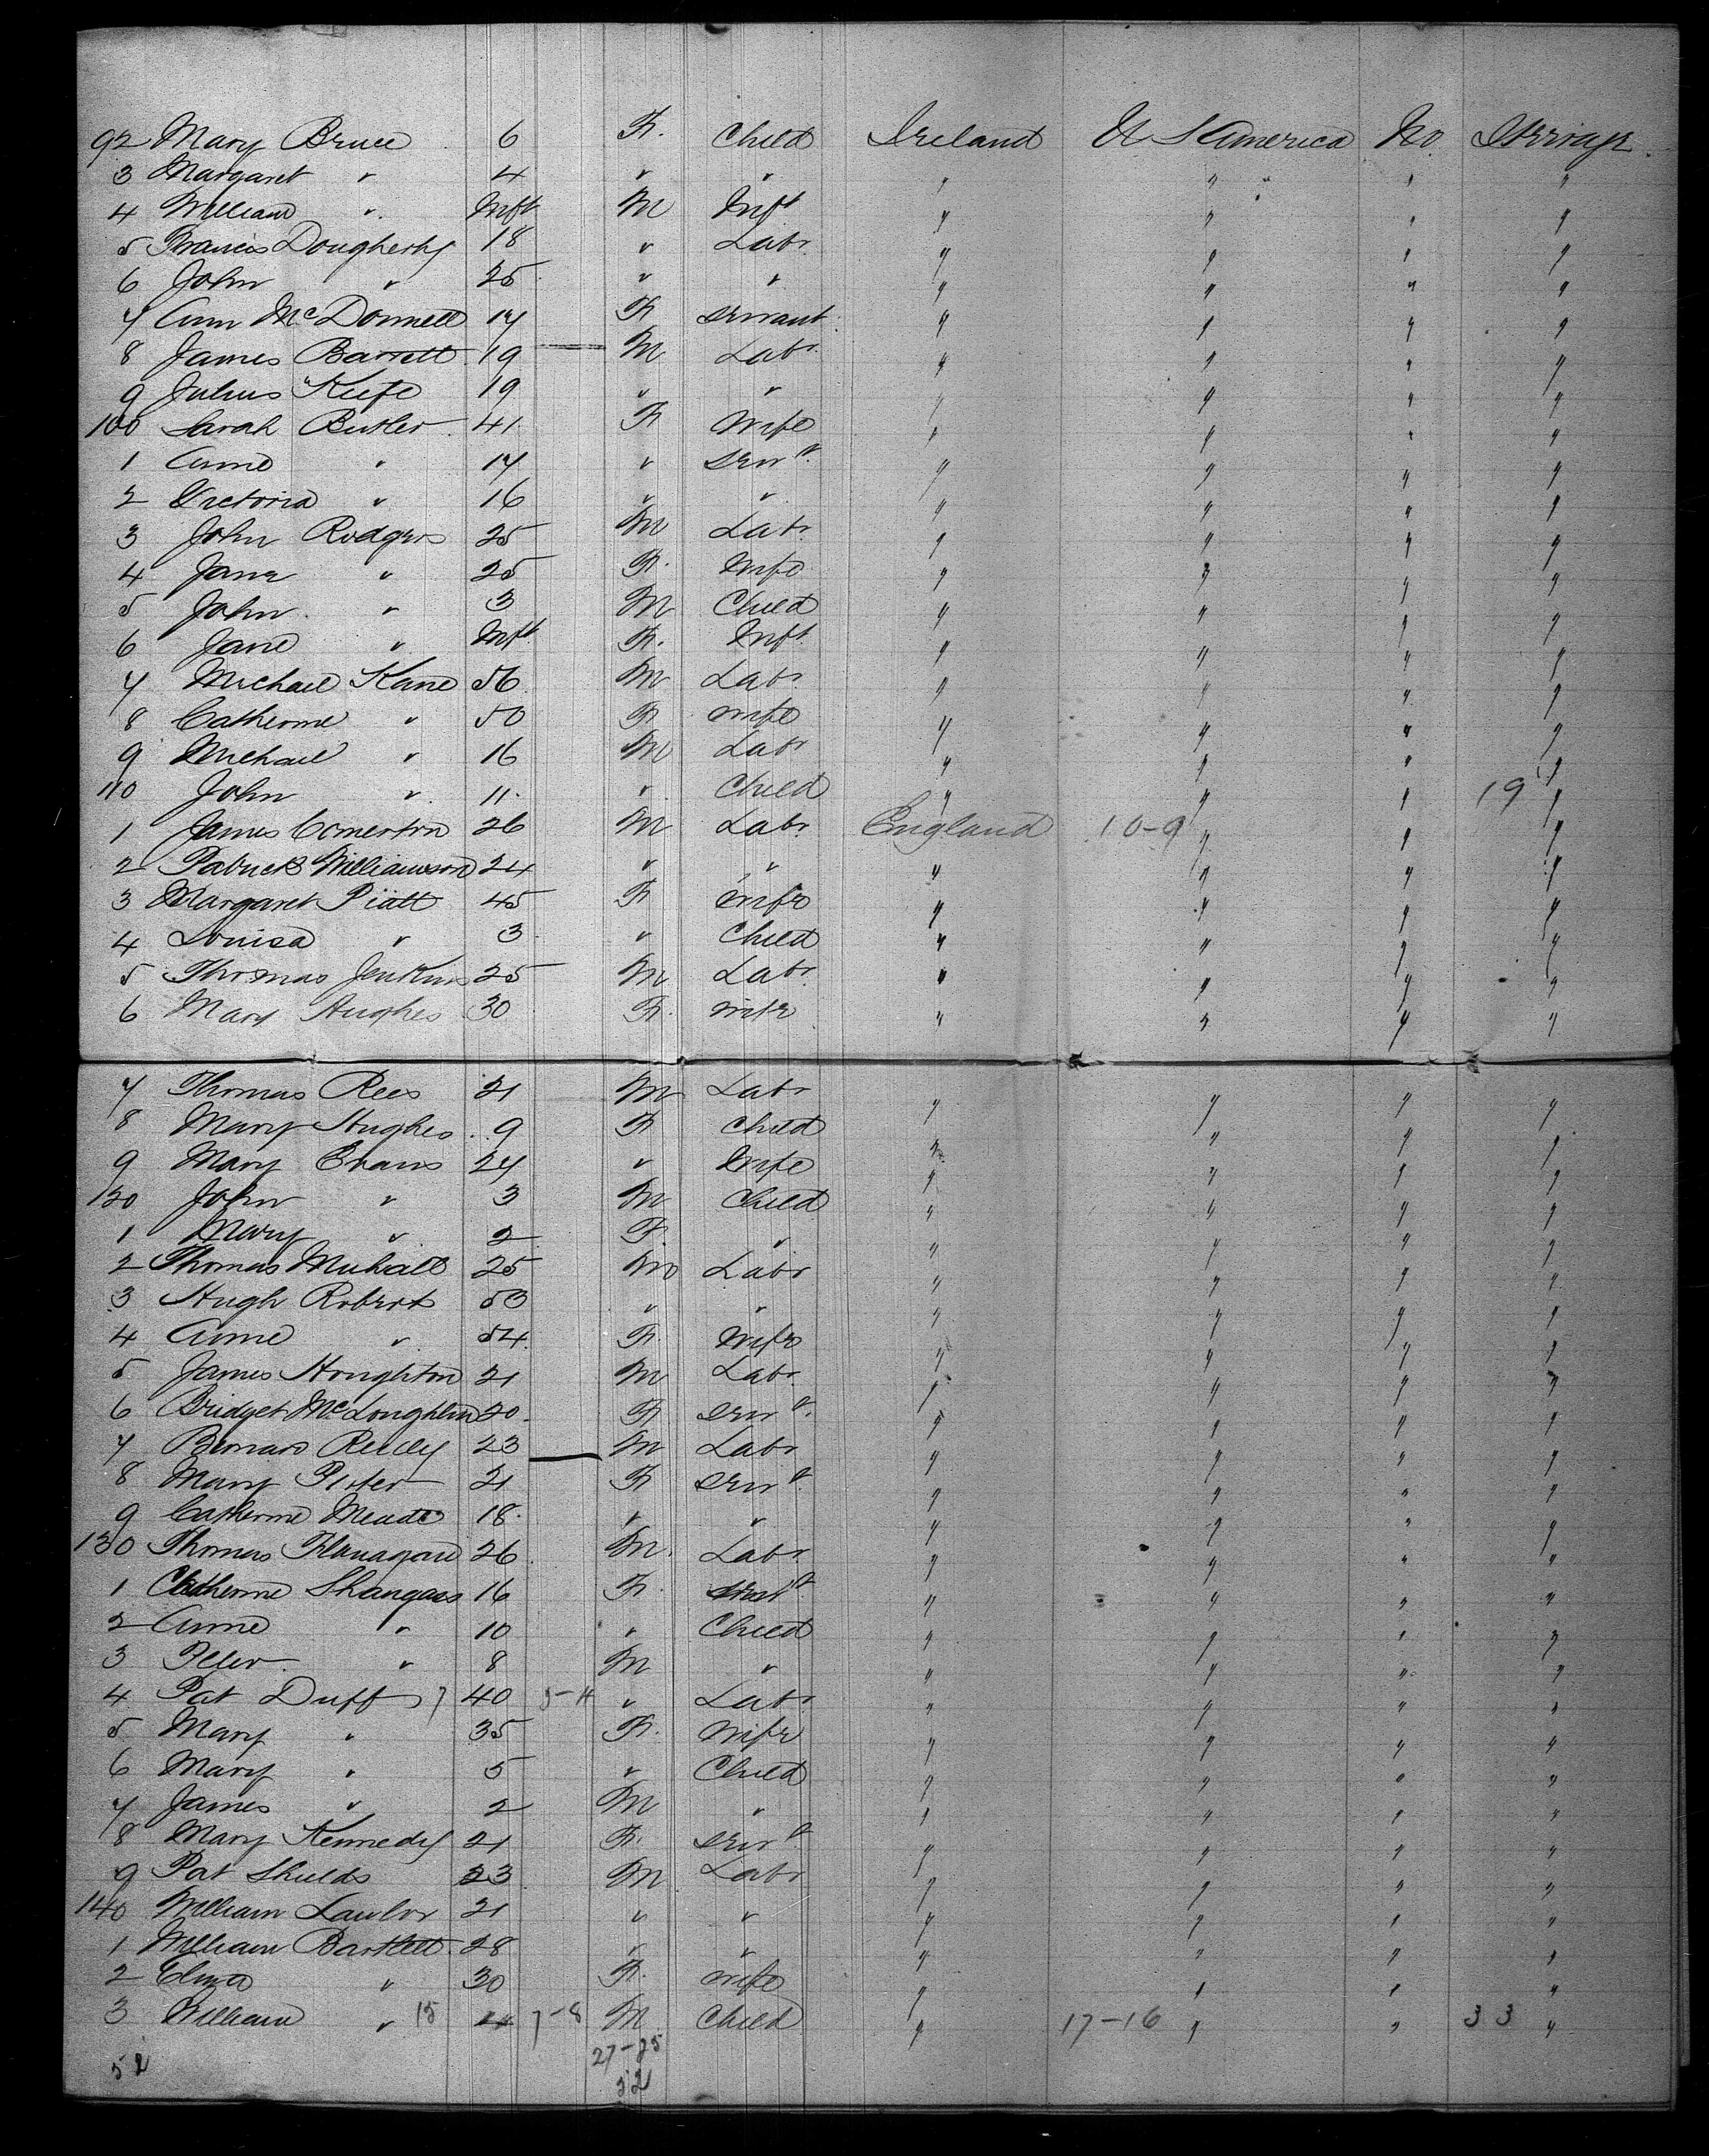 92 Mary Bruce 6 F. Child Ireland U S America No Steerage
3 Margaret " 4 " " " " " "
4 William " Inft M Inft " " " "
5 Francis Dougherty 18 " Labr " " " "
6 John " 25 " " " " " "
7 Ann McDonnell 17 F servant " " " "
8 James Barrett 19 M Labr " " " "
9 Julius Keefe 19 " " " " " "
100 Sarah Butler 41 F Wife " " " "
1 Anne " 17 " servt " " " "
2 Victoria " 16 " " " " " "
3 John Rodgers 25 M Labr " " " "
4 Jane " 25 F. Wife " " " "
5 John " 3 M Child " " " "
6 Jane " Inft F. Inft " " " "
7 Michael Kane 56 M Labr " " " "
8 Catherine " 50 F wife " " " "
9 Michael " 16 M Labr " " " "
110 John " 11 " Child " " " 19 "
1 James Comerton 26 M Labr England 10-9 " " "
2 Patrick Williamson 24 " " " " " "
3 Margaret Piatt 45 F wife " " " "
4 Louisa " 3 " Child " " " "
5 Thomas Jenkins 25 M Labr " " " "
6 Mary Hughes 30 F. wife " " " "
7 Thomas Rees 21 M Labr " " " "
8 Mary Hughes 9 F Child " " " "
9 Mary Evans 24 " Wife " " " "
120 John " 3 M Child " " " "
1 Mary " 2 F. " " " " "
2 Thomas Muhall 25 M Labr " " " "
3 Hugh Roberts 53 " " " " " "
4 Anne " 54 F. Wife " " " "
5 James Houghton 21 M Labr " " " "
6 Bridget McLoughlin 20 F servt " " " "
7 Bernard Reilly 23 M Labr " " " "
8 Mary 21 F servt " " " "
9 Catherine Meade 18 " " " " " "
130 Thomas Flanagan 26 M. Labr " " " "
1 Catherine 16 F. servt " " " "
2 Anne " 10 " Child " " " "
3 Peter " 8 M " " " " "
4 Pat Duff 7 40 5-4 " Labr " " " "
5 Mary " 35 F. Wife " " " "
6 Mary " 5 " Child " " " "
7 James " 2 M " " " " "
8 Mary Kennedy 21 F. servt " " " "
9 Pat Shields 23 M Labr " " " "
140 William Lawlor 21 " " " " " "
1 William Bartlett 28 " " " " " "
2 Eliza " 30 F. wife " " " "
3 William " 15 7-8 M Child " 17-16 " " 33 "
52 27-25
52